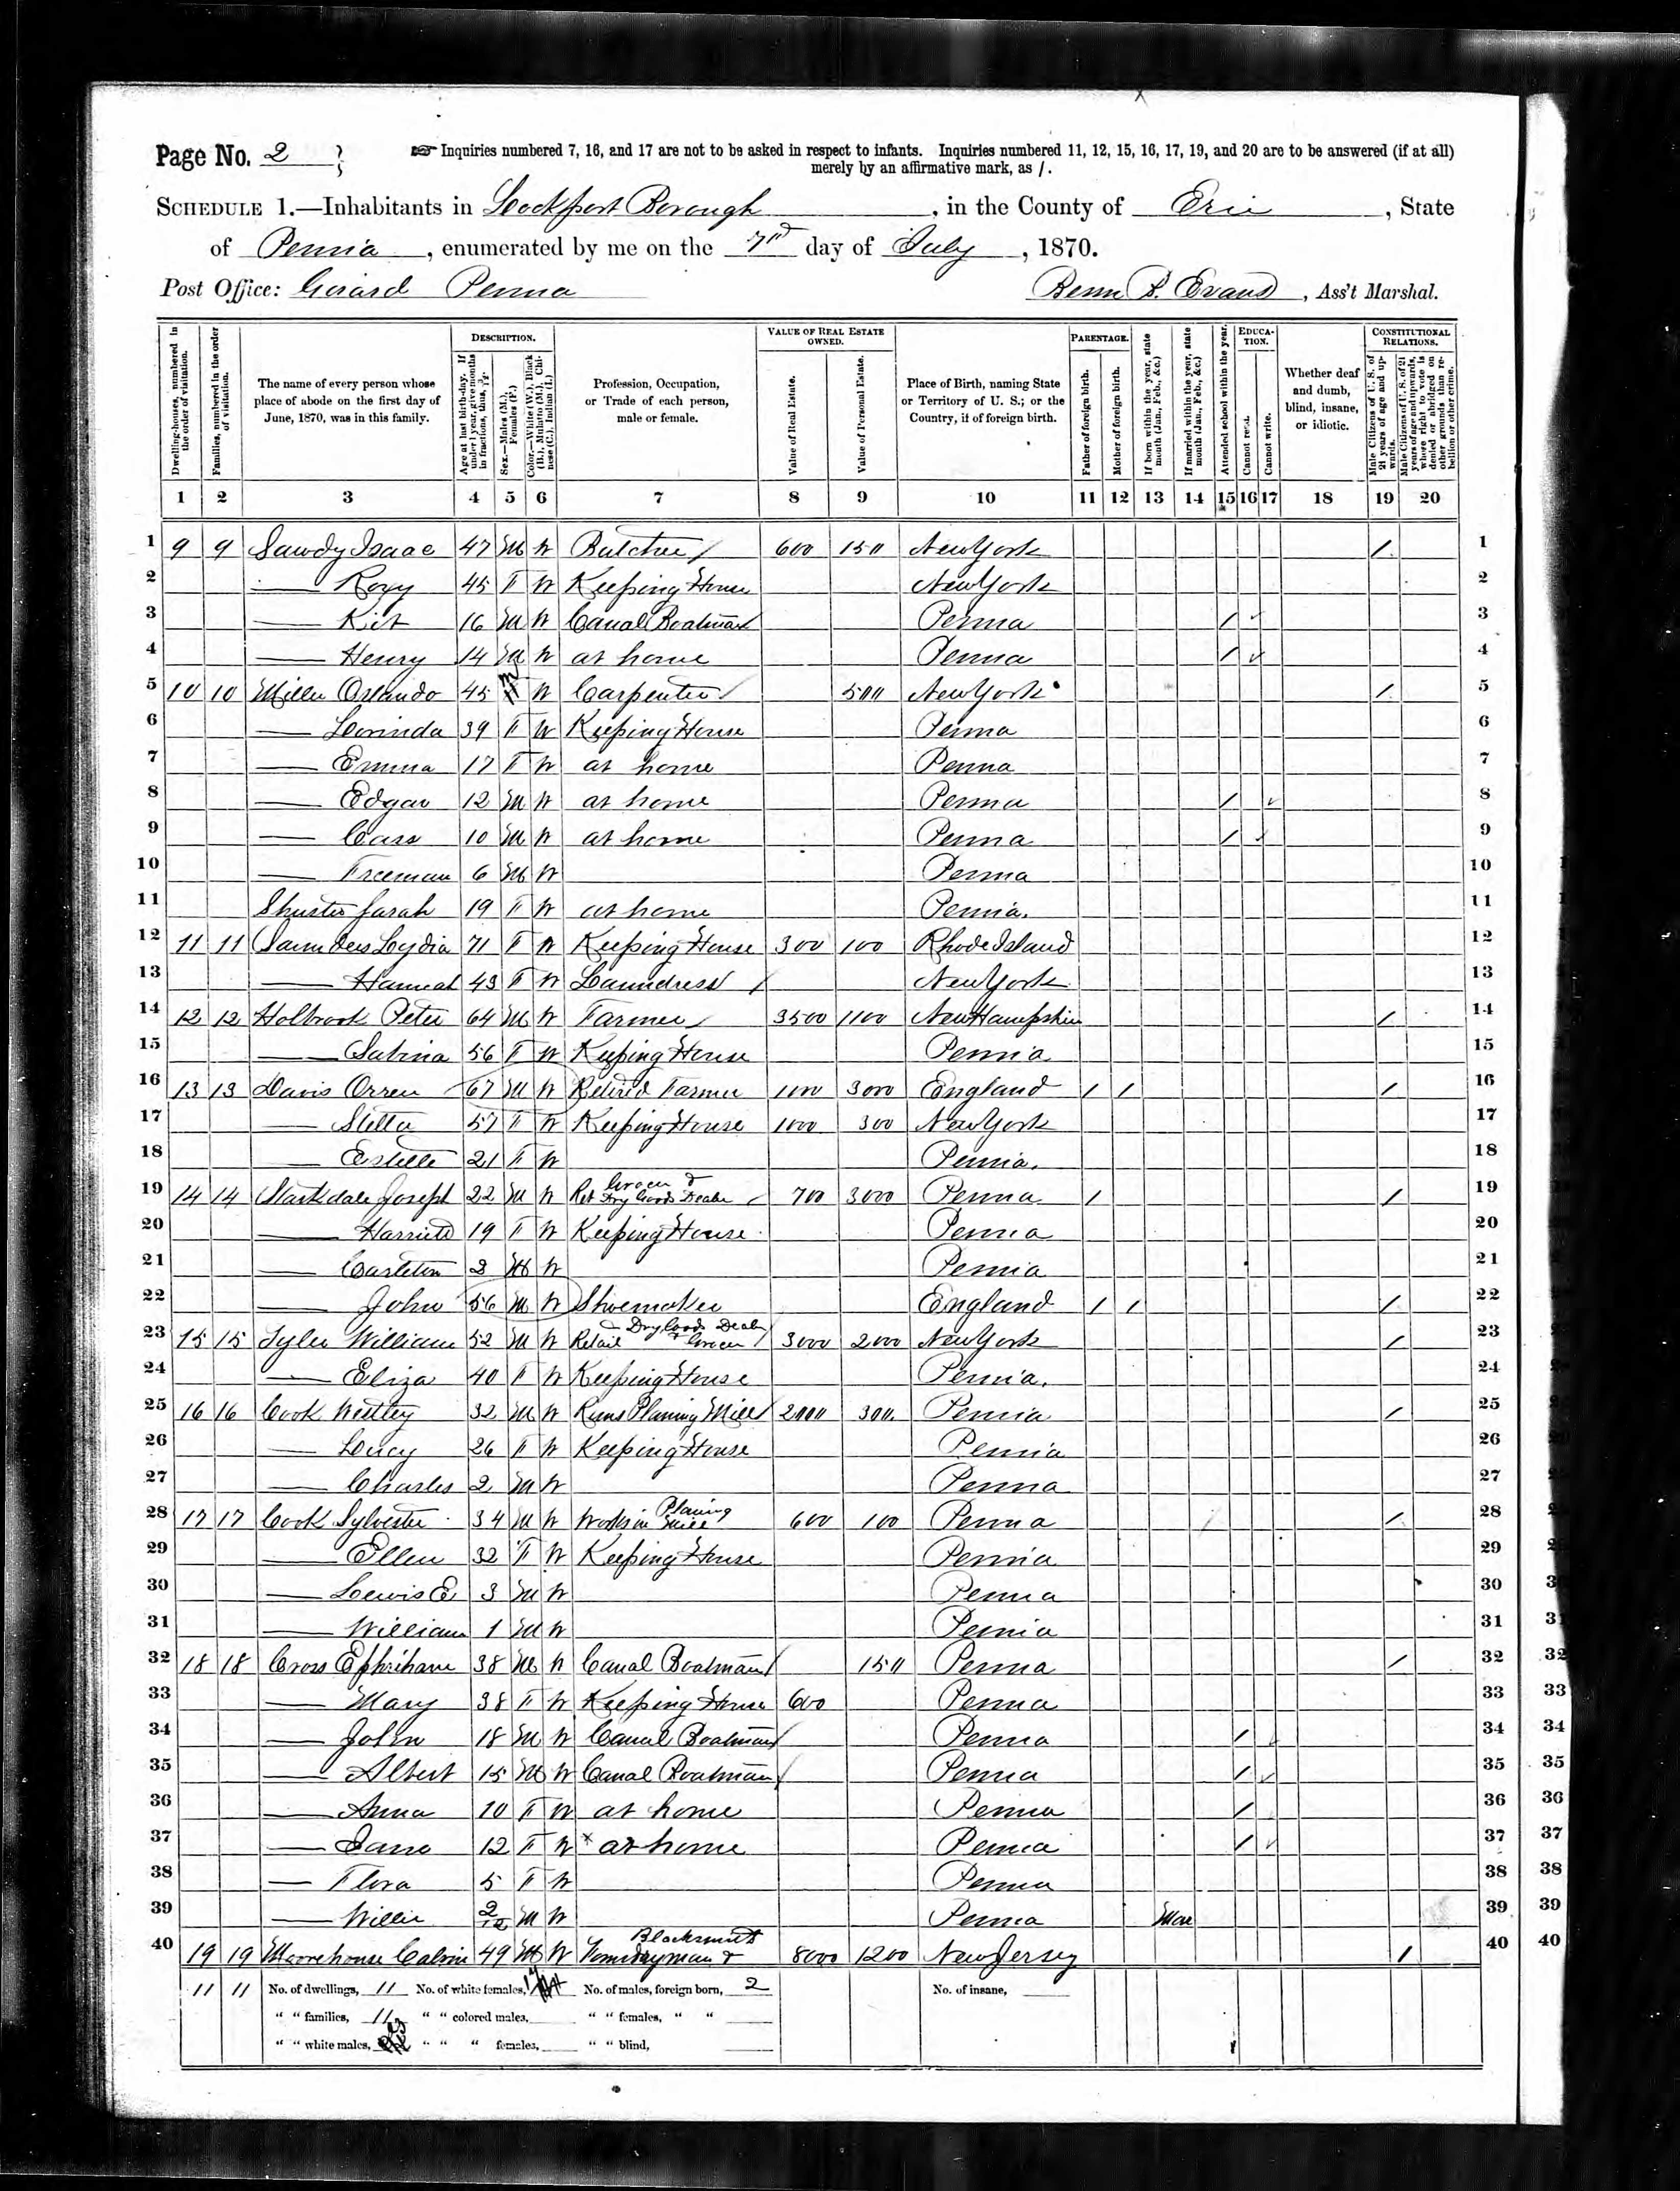 Page No. 2
☞ Inquiries numbered 7, 16, and 17 are not to be asked in respect to infants. Inquiries numbered 11, 12, 15, 16, 17, 19, and 20 are to be answered (if at all)
merely by an affirmative mark, as /.
SCHEDULE 1.—Inhabitants in Lockport Borough, in the County of Erie, State
of Penna, enumerated by me on the day of July, 1870.
Post Office: Girard Penna
Evans, Ass't Marshal.
Dwelling-houses, numbered in the order of visitation.
Families, numbered in the order of visitation.
The name of every person whose place of abode on the first day of June, 1870, was in this family.
DESCRIPTION.
Age at last birth-day. If under 1 year, give months in fractions, thus, 3/12.
Sex.—Males (M.), Females (F.)
Color.—White (W.), Black (B.), Mulatto (M.), Chinese (C.), Indian (I.)
Profession, Occupation, or Trade of each person, male or female.
VALUE OF REAL ESTATE OWNED.
Value of Real Estate.
Value of Personal Estate.
Place of Birth, naming State or Territory of U. S.; or the Country, if of foreign birth.
PARENTAGE.
Father of foreign birth.
Mother of foreign birth.
If born within the year, state month (Jan., Feb., &c.)
If married within the year, state month (Jan., Feb., &c.)
Attended school within the year.
EDUCATION.
Cannot read.
Cannot write.
Whether deaf and dumb, blind, insane, or idiotic.
CONSTITUTIONAL RELATIONS.
Male Citizens of U. S. of 21 years of age and upwards.
Male Citizens of U. S. of 21 years of age and upwards, whose right to vote is denied or abridged on other grounds than rebellion or other crime.
1 2 3 4 5 6 7 8 9 10 11 12 13 14 15 16 17 18 19 20
1 9 9 Sawdy Isaac 47 M W Butcher 600 150 New York / 1
2 — Roxy 45 F W Keeping House New York 2
3 — Kit 16 M W Canal Boatman Penna / ✓ 3
4 — Henry 14 M W at home Penna / ✓ 4
5 10 10 Miller Orlando 45 M W Carpenter 500 New York / 5
6 — Lorinda 39 F W Keeping House Penna 6
7 — Emma 17 F W at home Penna 7
8 — Edgar 12 M W at home Penna / ✓ 8
9 — Cass 10 M W at home Penna / ✓ 9
10 — Freeman 6 M W Penna 10
11 Shuster Sarah 19 F W at home Penna. 11
12 11 11 Saunders Lydia 71 F W Keeping House 300 100 Rhode Island 12
13 — Hannah 43 F W Laundress New York 13
14 12 12 Holbrook Peter 64 M W Farmer 3500 1100 New Hampshire / 14
15 — Sabina 56 F W Keeping House Penna 15
16 13 13 Davis Orren 67 M W Retired Farmer 1000 3000 England / / / 16
17 — Stella 57 F W Keeping House 1000 300 New York 17
18 — Estelle 21 F W Penna. 18
19 14 14 Joseph 22 M W Ret Grocer & Dry Goods Dealer 700 3000 Penna / / 19
20 — 19 F W Keeping House Penna 20
21 — Carleton M W Penna 21
22 — John 56 M W Shoemaker England / / / 22
23 15 15 Tyler William 52 M W Retail Dry Goods Dealer & Grocer 3000 2000 New York / 23
24 — Eliza 40 F W Keeping House Penna. 24
25 16 16 Cook Westley 32 M W Runs Planing Mill 2000 300 Penna / 25
26 — Lucy 26 F W Keeping House Penna 26
27 — Charles 2 M W Penna 27
28 17 17 Cook Sylvester 34 M W Works in Planing Mill 600 100 Penna / 28
29 — Ellen 32 F W Keeping House Penna 29
30 — Lewis E 3 M W Penna 30
31 — William 1 M W Penna 31
32 18 18 Cross Ephriham 38 M W Canal Boatman 150 Penna / 32
33 — Mary 38 F W Keeping House 600 Penna 33
34 — John 18 M W Canal Boatman Penna / ✓ 34
35 — Albert 15 M W Canal Boatman Penna / ✓ 35
36 — Anna 10 F W at home Penna / 36
37 — Jane 12 F W at home Penna / ✓ 37
38 — Flora 5 F W Penna 38
39 — Willie 2/12 M W Penna Mar 39
40 19 19 Moorehouse Calvin 49 M W Blacksmith 8000 1200 New Jersey / 40
11 11 No. of dwellings, 11 No. of white females, 17 No. of males, foreign born, 2 No. of insane,
" " families, 11 " " colored males, " " females, " "
" " white males, 23 " " " females, " " blind,